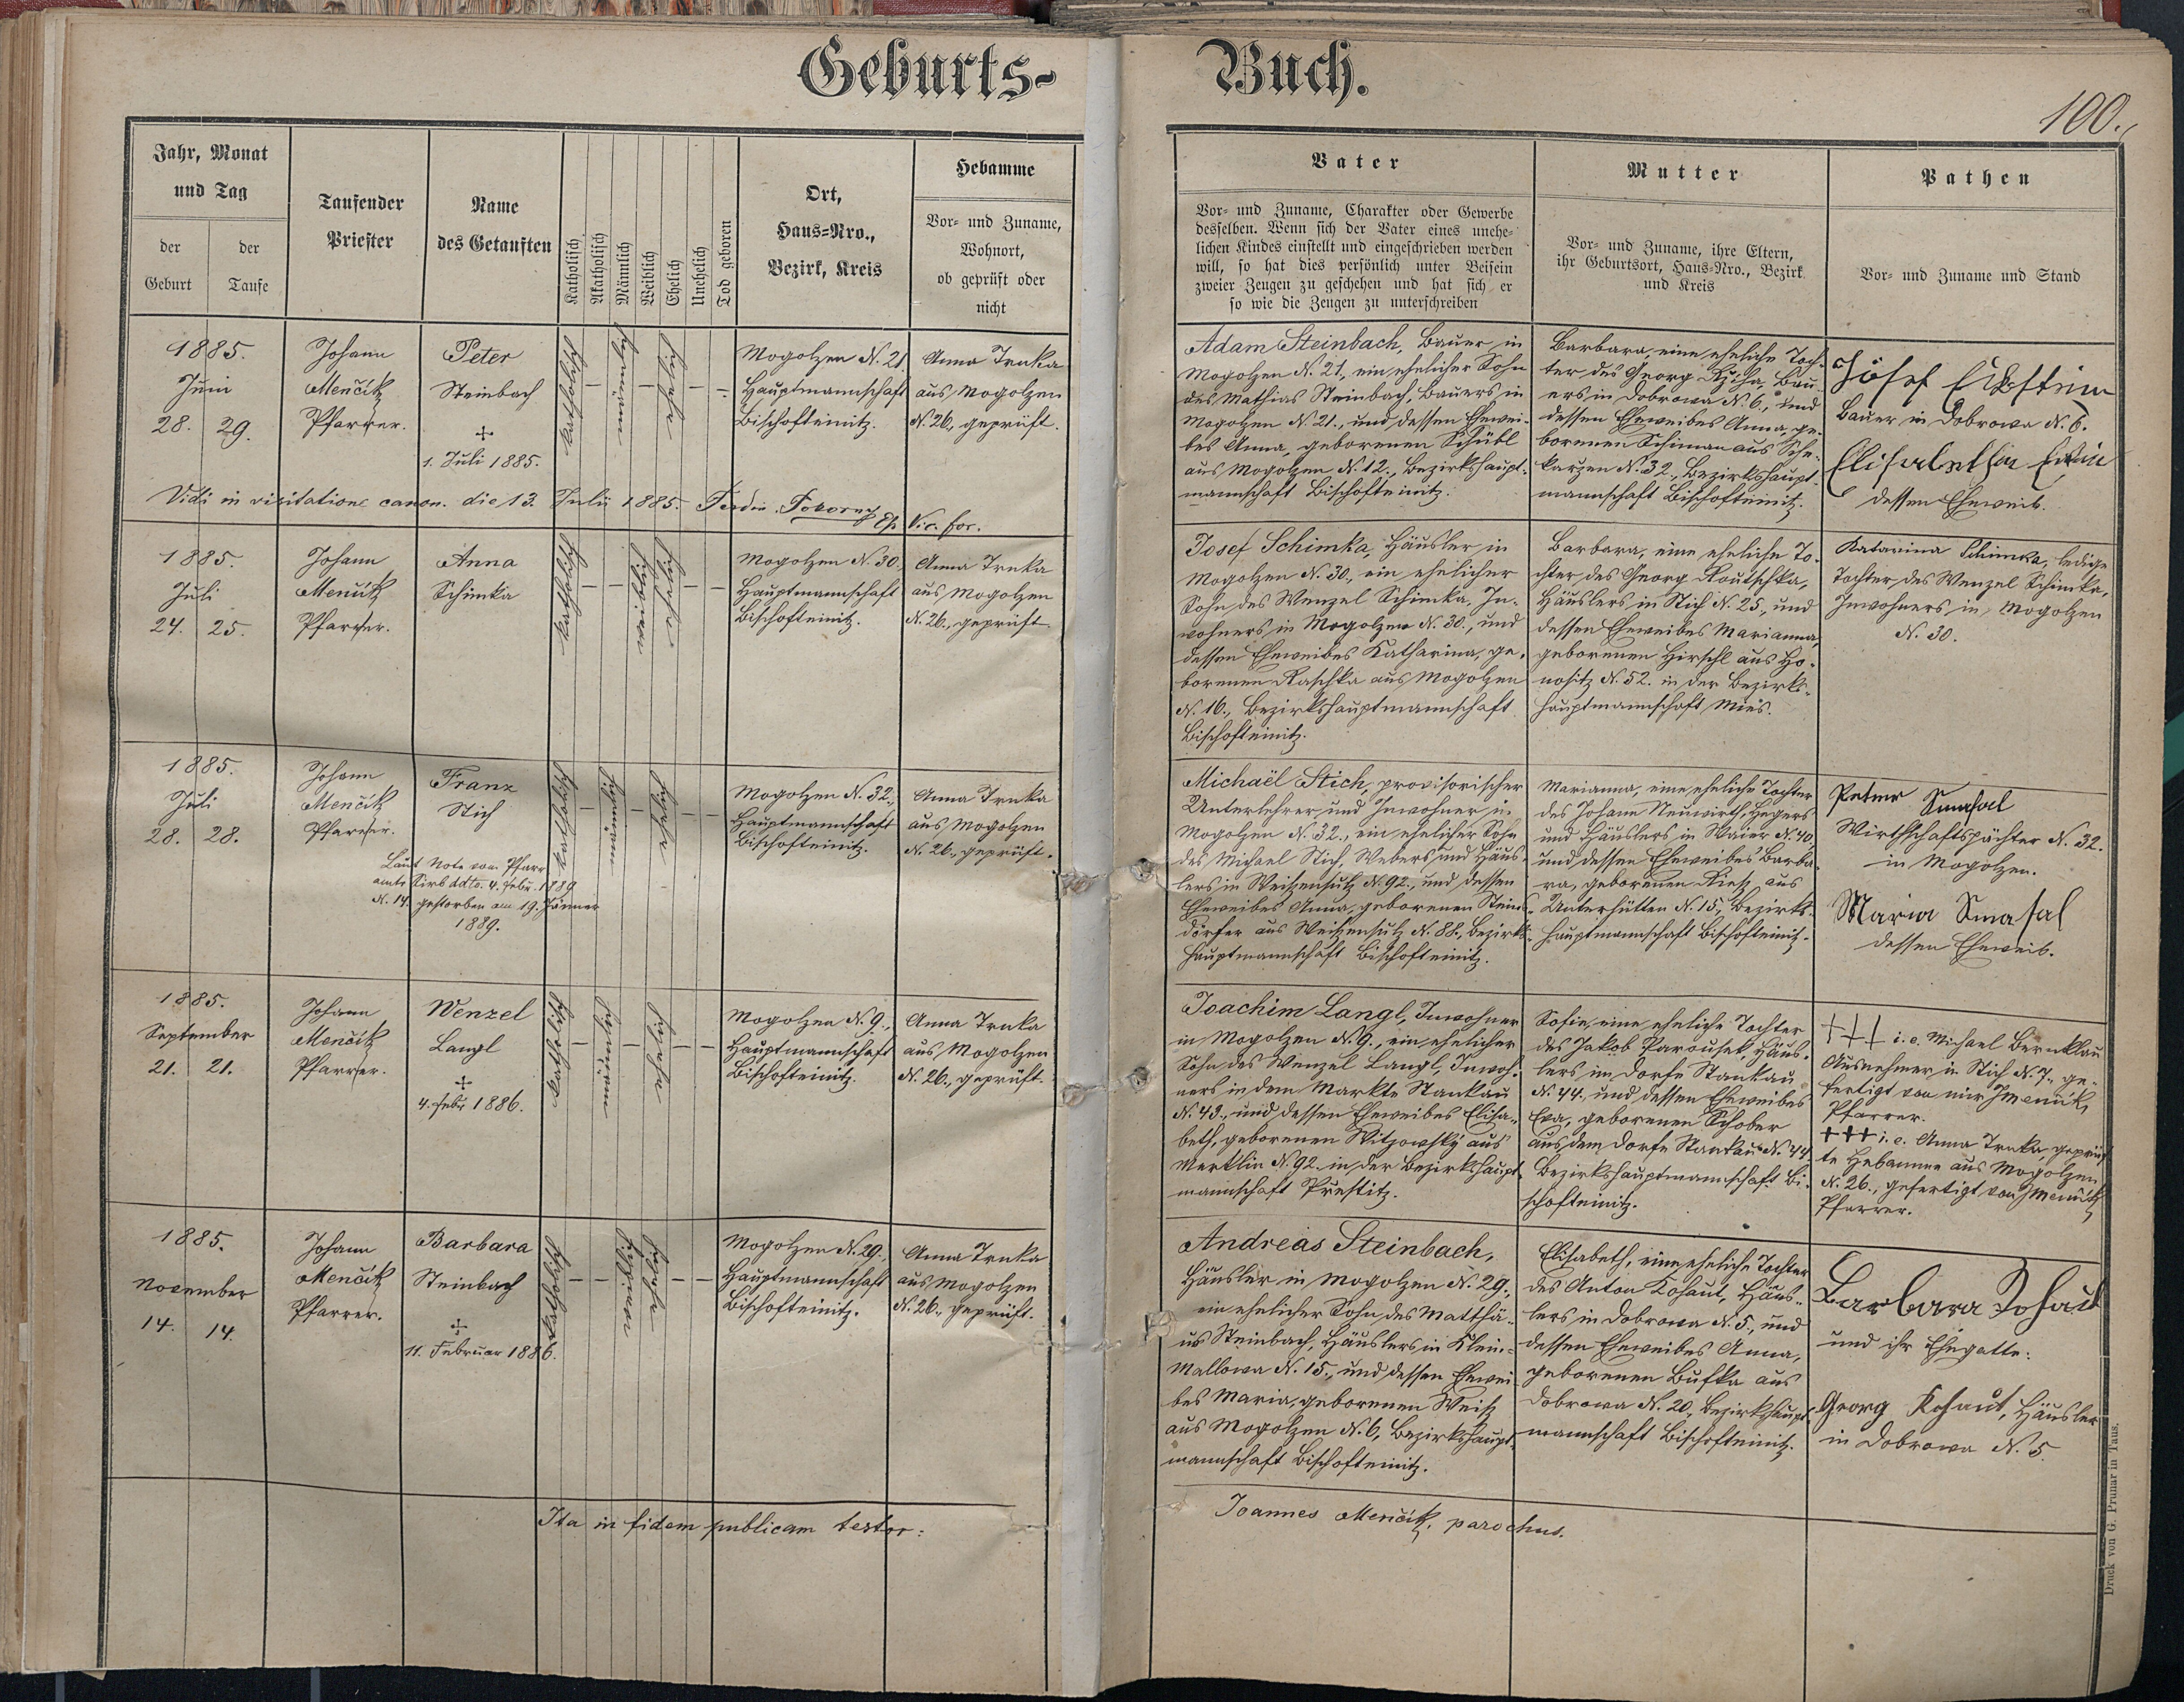 Geburts-
Buch.
100.
Jahr, Monat
und Tag
der
Geburt
der
Taufe
Taufender
Priester
Name
des Getauften
Katholisch
Akatholisch
Männlich
Weiblich
Ehelich
Unehelich
Tod geboren
Ort,
Haus=Nro.,
Bezirk, Kreis
Hebamme
Vor- und Zuname,
Wohnort,
ob geprüft oder
nicht
Vater
Vor- und Zuname, Charakter oder Gewerbe
desselben. Wenn sich der Vater eines unehe-
lichen Kindes einstellt und eingeschrieben werden
will, so hat dies persönlich unter Beisein
zweier Zeugen zu geschehen und hat sich er
so wie die Zeugen zu unterschreiben
Mutter
Vor- und Zuname, ihre Eltern,
ihr Geburtsort, Haus=Nro., Bezirk
und Kreis
Pathen
Vor- und Zuname und Stand
1885.
Juni
28. 29.
Johann
Menčik
Pfarrer.
Peter
Steinbach
+
1. Juli 1885.
katholisch
männlich
ehelich
Mogolzen N. 21
Hauptmannschaft
Bischofteinitz.
Anna Trnka
aus Mogolzen
N. 26., geprüft.
Adam Steinbach, Bauer in
Mogolzen N. 21, ein ehelicher Sohn
des Mathias Steinbach, Bauers in
Mogolzen N. 21., und dessen Ehewei-
bes Anna, geborenen Schübl
aus Mogolzen N. 12., Bezirkshaupt-
mannschaft Bischofteinitz.
Barbara, eine eheliche Toch-
ter des Georg Bau-
ers in Dobrowa N. 6., und
dessen Eheweibes Anna, ge-
borenen Schiman aus
N. 32., Bezirkshaupt-
mannschaft Bischofteinitz.
Josef
Bauer in Dobrowa N. 6.
Elisabetha
dessen Eheweib.
Vidi in visitatione canon. die 13. Julii 1885. Ferdin. Pokorny Ep. Vic. for.
1885.
Juli
24. 25.
Johann
Menčik
Pfarrer.
Anna
Schimka
katholisch
weiblich
ehelich
Mogolzen N. 30.
Hauptmannschaft
Bischofteinitz.
Anna Trnka
aus Mogolzen
N. 26., geprüft.
Josef Schimka, Häusler in
Mogolzen N. 30., ein ehelicher
Sohn des Wenzel Schimka, In-
wohners in Mogolzen N. 30., und
dessen Eheweibes Katharina, ge-
borenen Raschka aus Mogolzen
N. 16., Bezirkshauptmannschaft
Bischofteinitz.
Barbara, eine eheliche To-
chter des Georg Routschka,
Häuslers in Stich N. 25, und
dessen Eheweibes Marianna,
geborenen Hirschl aus Ho-
nositz N. 52. in der Bezirks-
hauptmannschaft Mies.
Katarina Schimka, ledige
Tochter des Wenzel Schimka,
Inwohners in Mogolzen
N. 30.
1885.
Juli
28. 28.
Johann
Menčik
Pfarrer.
Franz
Stich
Laut Note vom Pfarr-
amte Sirb ddto. 4. Febr. 1889
N. 14. gestorben am 19. Jänner
1889.
katholisch
männlich
ehelich
Mogolzen N. 32.,
Hauptmannschaft
Bischofteinitz.
Anna Trnka
aus Mogolzen
N. 26., geprüft.
Michaël Stich, provisorischer
Unterlehrer und Inwohner in
Mogolzen N. 32., ein ehelicher Sohn
des Michael Stich, Webers und Häus-
lers in Weißensulz N. 92., und dessen
Eheweibes Anna, geborenen Steins-
dörfer aus Weißensulz N. 88., Bezirks-
hauptmannschaft Bischofteinitz.
Marianna, eine eheliche Tochter
des Johann Neuwirth, Hegers
und Häuslers in Waier N. 40,
und dessen Eheweibes Barba-
ra, geborenen Rieß aus
Unterhütten N. 15., Bezirks-
hauptmannschaft Bischofteinitz.
Peter Smasal
Wirthschaftspächter N. 32.
in Mogolzen.
Maria Smasal
dessen Eheweib.
1885.
September
21. 21.
Johann
Menčik
Pfarrer.
Wenzel
Langl
+
4. Febr. 1886.
katholisch
männlich
ehelich
Mogolzen N. 9.,
Hauptmannschaft
Bischofteinitz.
Anna Trnka
aus Mogolzen
N. 26., geprüft.
Joachim Langl, Inwohner
in Mogolzen N. 9., ein ehelicher
Sohn des Wenzel Langl, Inwoh-
ners in dem Markte Stankau
N. 43., und dessen Eheweibes Elisa-
beth, geborenen Witzowsky aus
Merklin N. 92. in der Bezirkshaupt-
mannschaft Prestitz.
Sofie, eine eheliche Tochter
des Jakob Parousek, Häus-
lers im Dorfe Stankau
N. 44., und dessen Eheweibes
Eva, geborenen Schober
aus dem Dorfe Stankau N. 44.
Bezirkshauptmannschaft Bi-
schofteinitz.
+++ i. e. Michael Bernklau
Ausnehmer in Stich N. 7., ge-
fertigt von mir JMenčik,
Pfarrer.
+++ i. e. Anna Trnka, geprüf-
te Hebamme aus Mogolzen
N. 26., gefertigt von JMenčik
Pfarrer.
1885.
November
14. 14.
Johann
Menčik
Pfarrer.
Barbara
Steinbach
+
11. Februar 1886.
katholisch
weiblich
ehelich
Mogolzen N. 29.,
Hauptmannschaft
Bischofteinitz.
Anna Trnka
aus Mogolzen
N. 26., geprüft.
Andreas Steinbach,
Häusler in Mogolzen N. 29.,
ein ehelicher Sohn des Matthä-
us Steinbach, Häuslers in Klein-
Mallowa N. 15., und dessen Ehewei-
bes Maria, geborenen Weiß
aus Mogolzen N. 6, Bezirkshaupt-
mannschaft Bischofteinitz.
Elisabeth, eine eheliche Tochter
des Anton Kohaut, Häus-
lers in Dobrowa N. 5., und
dessen Eheweibes Anna,
geborenen Bufka aus
Dobrowa N. 20., Bezirkshaupt-
mannschaft Bischofteinitz.
Barbara Kohaut
und ihr Ehegatte:
Georg Kohaut, Häusler
in Dobrowa N. 5.
Ita in fidem publicam testor:
Joannes Menčik, parochus.
Druck von G. Prunar in Taus.